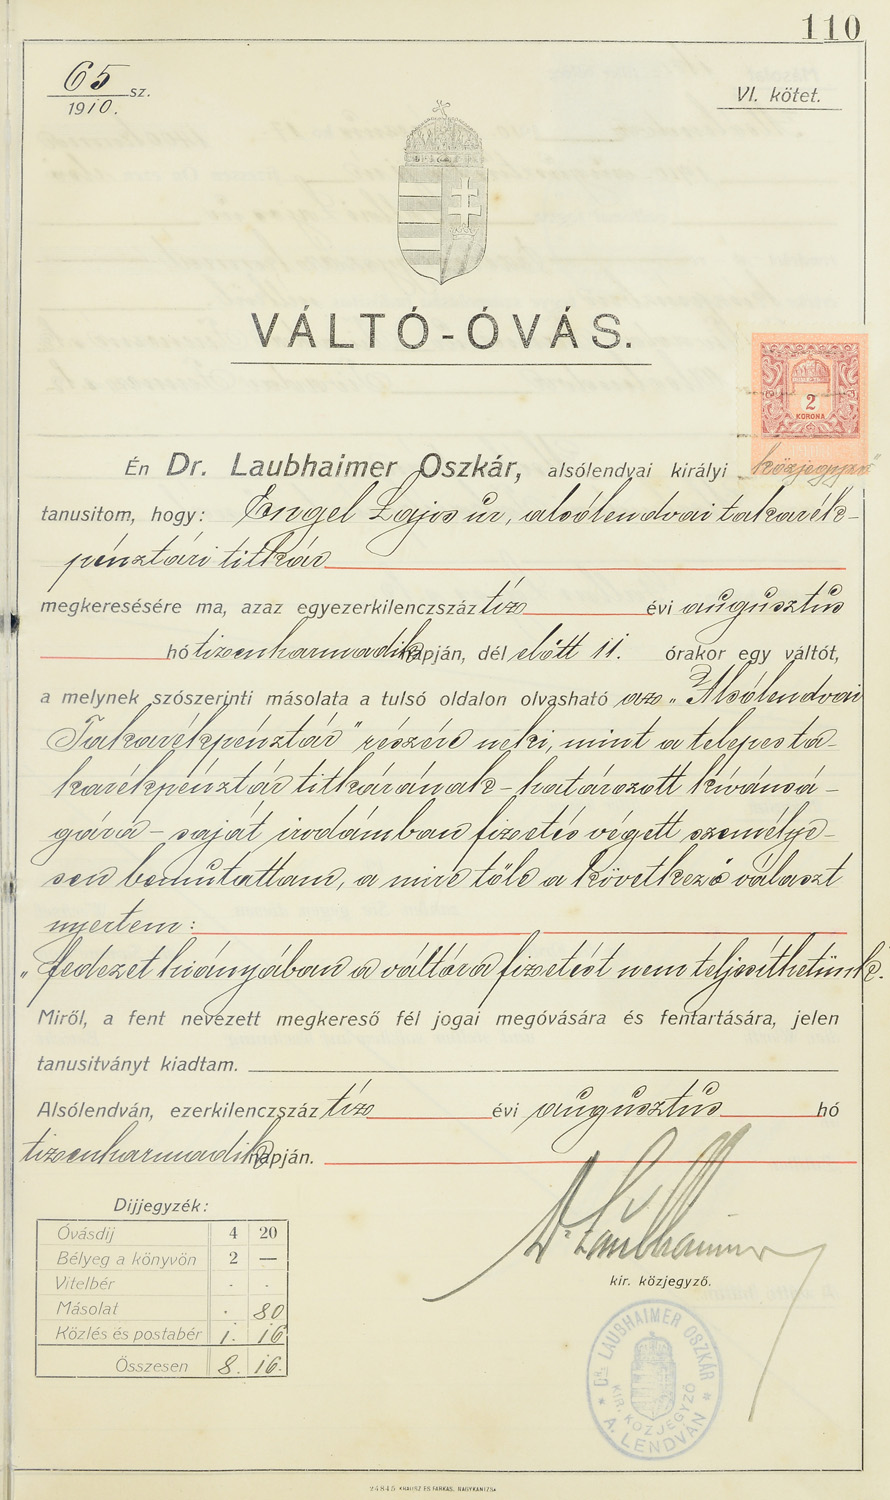 110
65 sz.
1910.
VI. kötet.
VÁLTÓ-ÓVÁS.
2
KORONA
Én Dr. Laubhaimer Oszkár, alsólendvai királyi közjegyző
tanusitom, hogy: Engel Lajos úr, alsólendvai takarék-
pénztári titkár
megkeresésére ma, azaz egyezerkilenczszáz tíz évi augusztus
hó tizenharmadik napján, dél előtt 11. órakor egy váltót,
a melynek szószerinti másolata a tulsó oldalon olvasható az „Alsólendvai
Takarékpénztár" részére neki, mint a telepes ta-
karékpénztár titkárának - határozott kívánsá-
gára - saját irodámban fizetés végett személye-
sen bemutattam, a mire tőle a következő választ
nyertem:
„fedezet hiányában a váltóra fizetést nem teljesíthetünk".
Miről, a fent nevezett megkereső fél jogai megóvására és fentartására, jelen
tanusitványt kiadtam.
Alsólendván, ezerkilenczszáz tíz évi augusztus hó
tizenharmadik napján.
Dijjegyzék:
Óvásdij 4 20
Bélyeg a könyvön 2 —
Vitelbér . .
Másolat . 80
Közlés és postabér 1. 16
Összesen 8. 16.
Dr. Laubhaimer
kir. közjegyző.
DR. LAUBHAIMER OSZKÁR
KIR. KÖZJEGYZŐ
* A. LENDVÁN *
24845 KRAUSZ ÉS FARKAS, NAGYKANIZSA